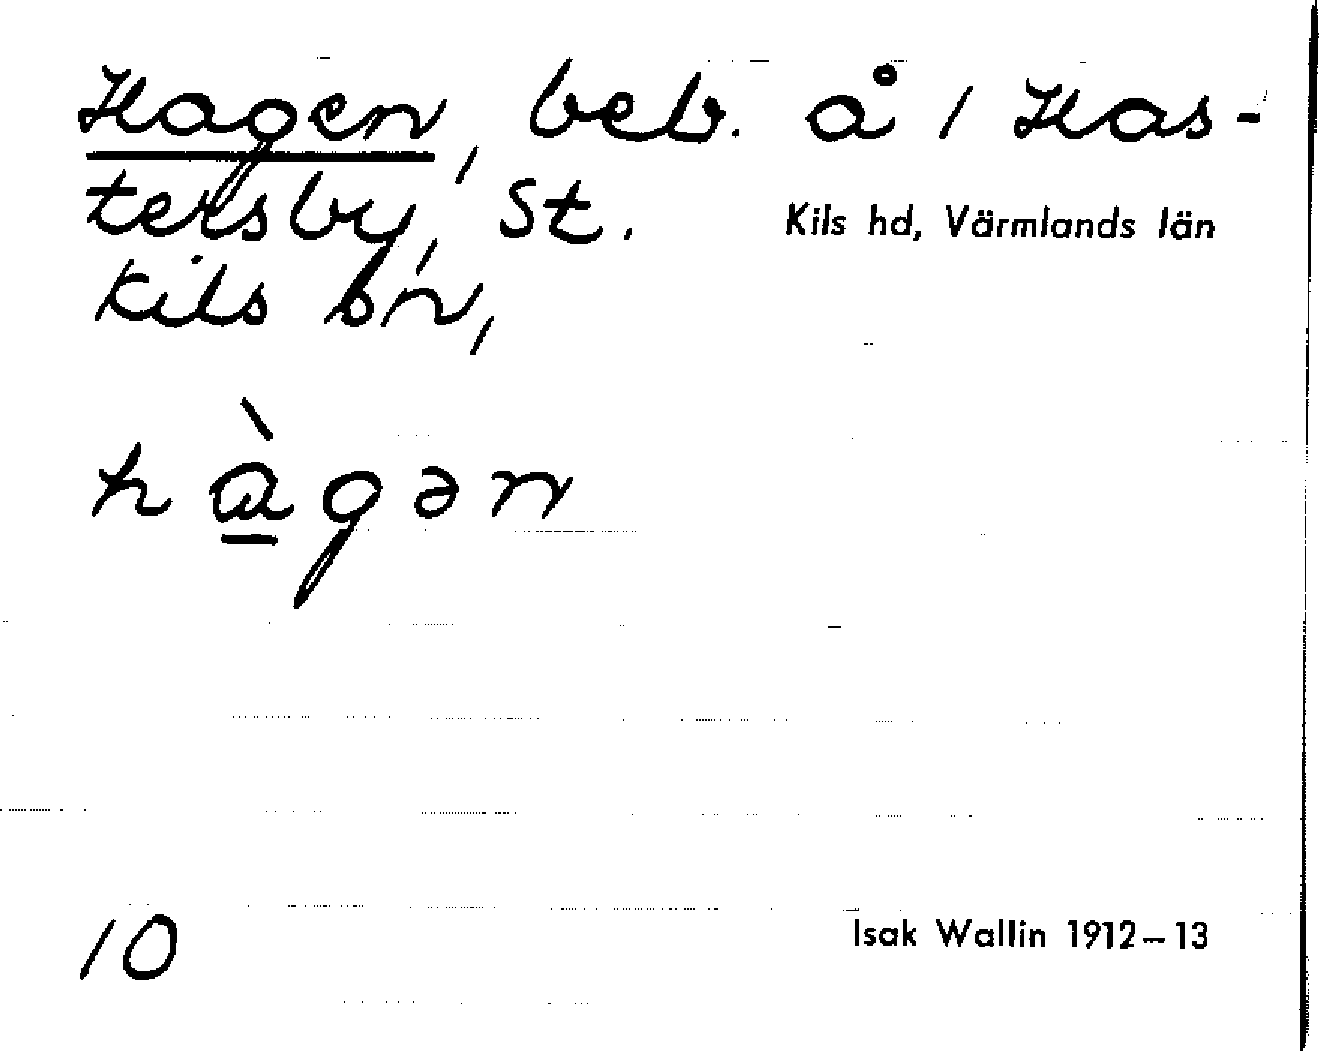 Hagen, beb. å 1 Has-
tersby, St.
Kils hd, Värmlands län
Kils sn,
hàgən
10
Isak Wallin 1912–13